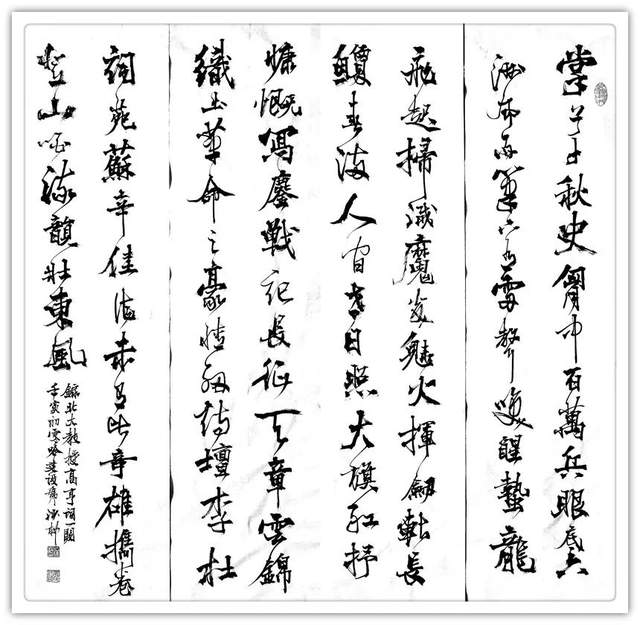 掌上千秋史胸中百萬兵眼底六
洲風雨筆下有雷聲喚醒蟄龍
飛起掃滅魔炎魅火揮劍斬長
鯨春滿人間世日照大旗紅抒
慷慨寫鏖戰記長征天章雲錦
織出革命之豪情細詩壇李杜
詞苑蘇辛佳什未有此奇雄攜卷
登山唱流韻壯東風
錄北大教授高亨詞一闋
壬寅初雪